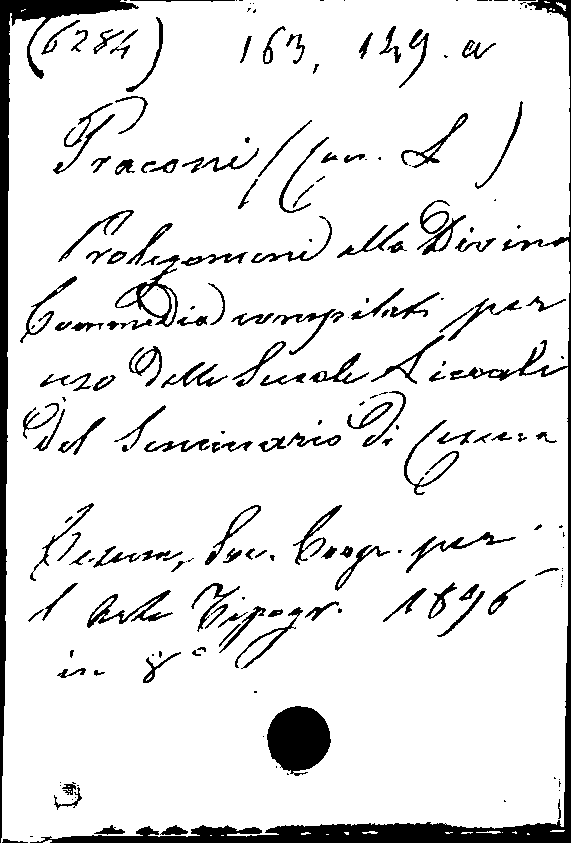 (6284) 163, 149. a
Praconi (Can. L)
Prolegomeni alla Divina
Commedia compilati per
uso delle Scuole Liceali
del Seminario di Cesena
Cesena, Soc. Coop. per
l'Arte Tipogr. 1896
in 8°